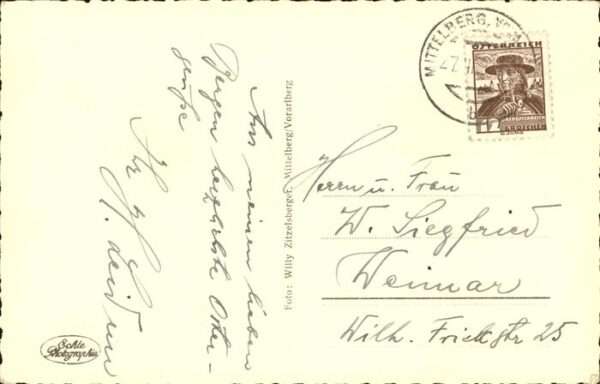 Aus meinen lieben
Bergen herzliche Oster-
grüße
Ihr
Foto: Willy Zitzelsberger, Mittelberg/Vorarlberg
Echte
Photographie
MITTELBERG, Vor
ÖSTERREICH
12
GROSCHEN
Herrn u. Frau
W. Siegfried
Weimar
Wilh. Frick Str 25